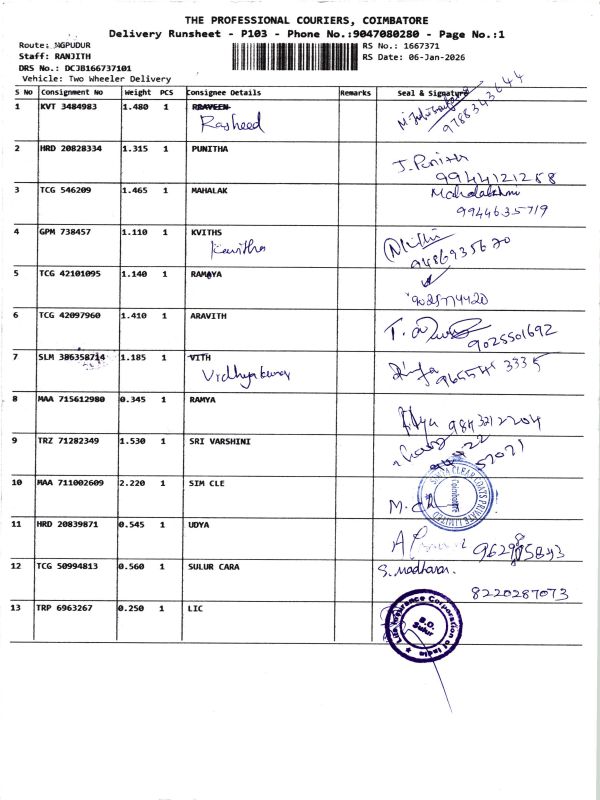 THE PROFESSIONAL COURIERS, COIMBATORE
Delivery Runsheet - P103 - Phone No.:9047080280 - Page No.:1
Route: NGPUDUR
RS No.: 1667371
Staff: RANJITH
RS Date: 06-Jan-2026
DRS No.: DCJB166737101
Vehicle: Two Wheeler Delivery
S No Consignment No Weight PCS Consignee Details Remarks Seal & Signature
1 KVT 3484983 1.480 1 PRAVEEN
Rasheed
9788343644
2 HRD 20828334 1.315 1 PUNITHA
J. Punitha
9944121258
3 TCG 546209 1.465 1 MAHALAK
Mahalakshmi
9944635719
4 GPM 738457 1.110 1 KVITHS
Kavitha
9486935620
5 TCG 42101095 1.140 1 RAMAYA
9025774420
6 TCG 42097960 1.410 1 ARAVITH
9025501692
7 SLM 386358714 1.185 1 VITH
Vidhyakumar
96554 3335
8 MAA 715612980 0.345 1 RAMYA
9843212204
9 TRZ 71282349 1.530 1 SRI VARSHINI
57071
10 MAA 711002609 2.220 1 SIM CLE
CLEAR COATS PRIVATE LIMITED
Coimbatore
11 HRD 20839871 0.545 1 UDYA
12 TCG 50994813 0.560 1 SULUR CARA
S. Madhavan.
8220287073
13 TRP 6963267 0.250 1 LIC
Life Insurance Corporation of India
B.O.
Sulur